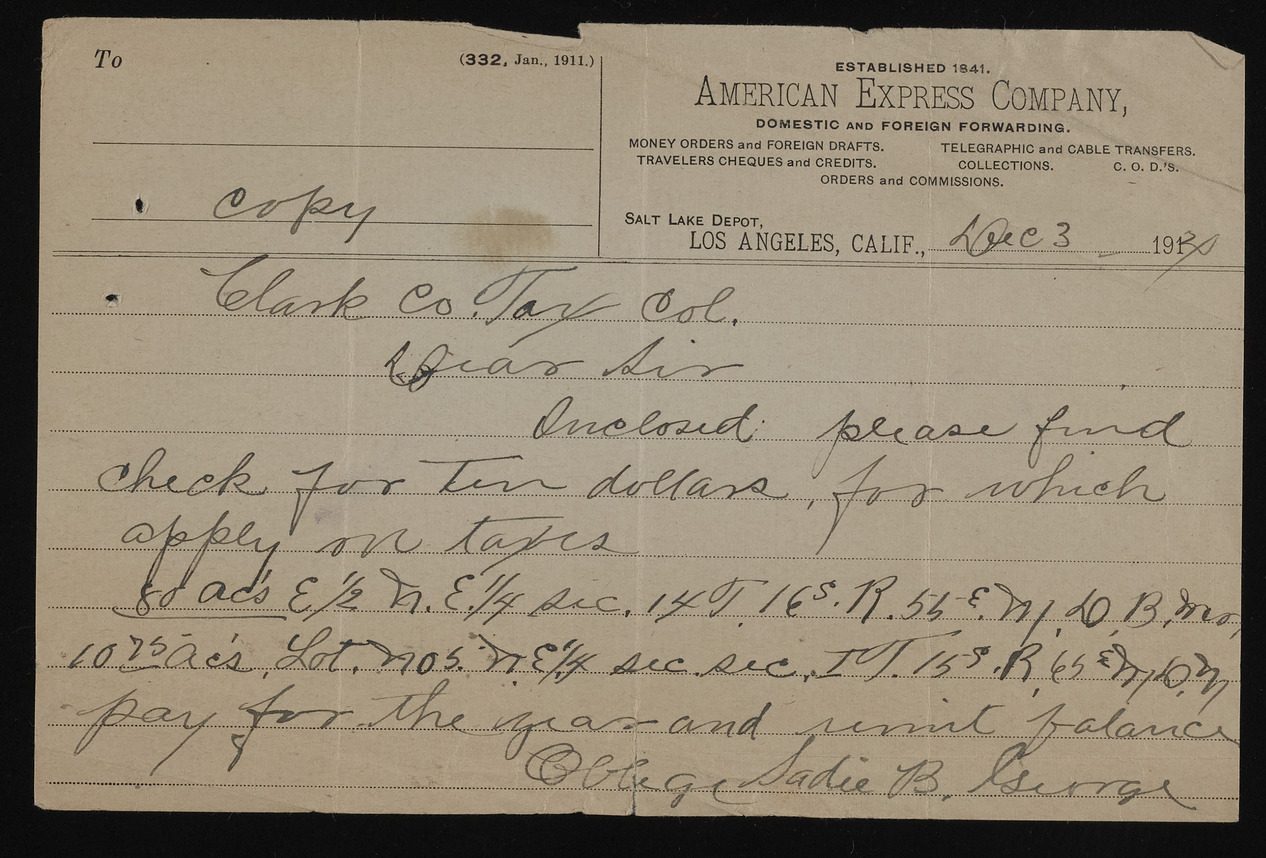 To
(332, Jan., 1911.)
ESTABLISHED 1841.
AMERICAN EXPRESS COMPANY,
DOMESTIC AND FOREIGN FORWARDING.
MONEY ORDERS and FOREIGN DRAFTS. TELEGRAPHIC and CABLE TRANSFERS.
TRAVELERS CHEQUES and CREDITS. COLLECTIONS. C. O. D.'S.
ORDERS and COMMISSIONS.
copy
SALT LAKE DEPOT,
LOS ANGELES, CALIF., Dec 3 19
Clark Co. Tax Col.
Dear Sir
Inclosed please find
check for ten dollars, for which
apply on taxes
80 ac's E 1/2 N. E. 1/4 sec. 14 T. 16 S. R. 55 E. M. D. B.
10 75 ac's, Lot. No 5. N E 1/4 sec. sec. 1 T. 15 S. R. 65 E M D. M
pay for the year and remit balance
Oblege Sadie B. George